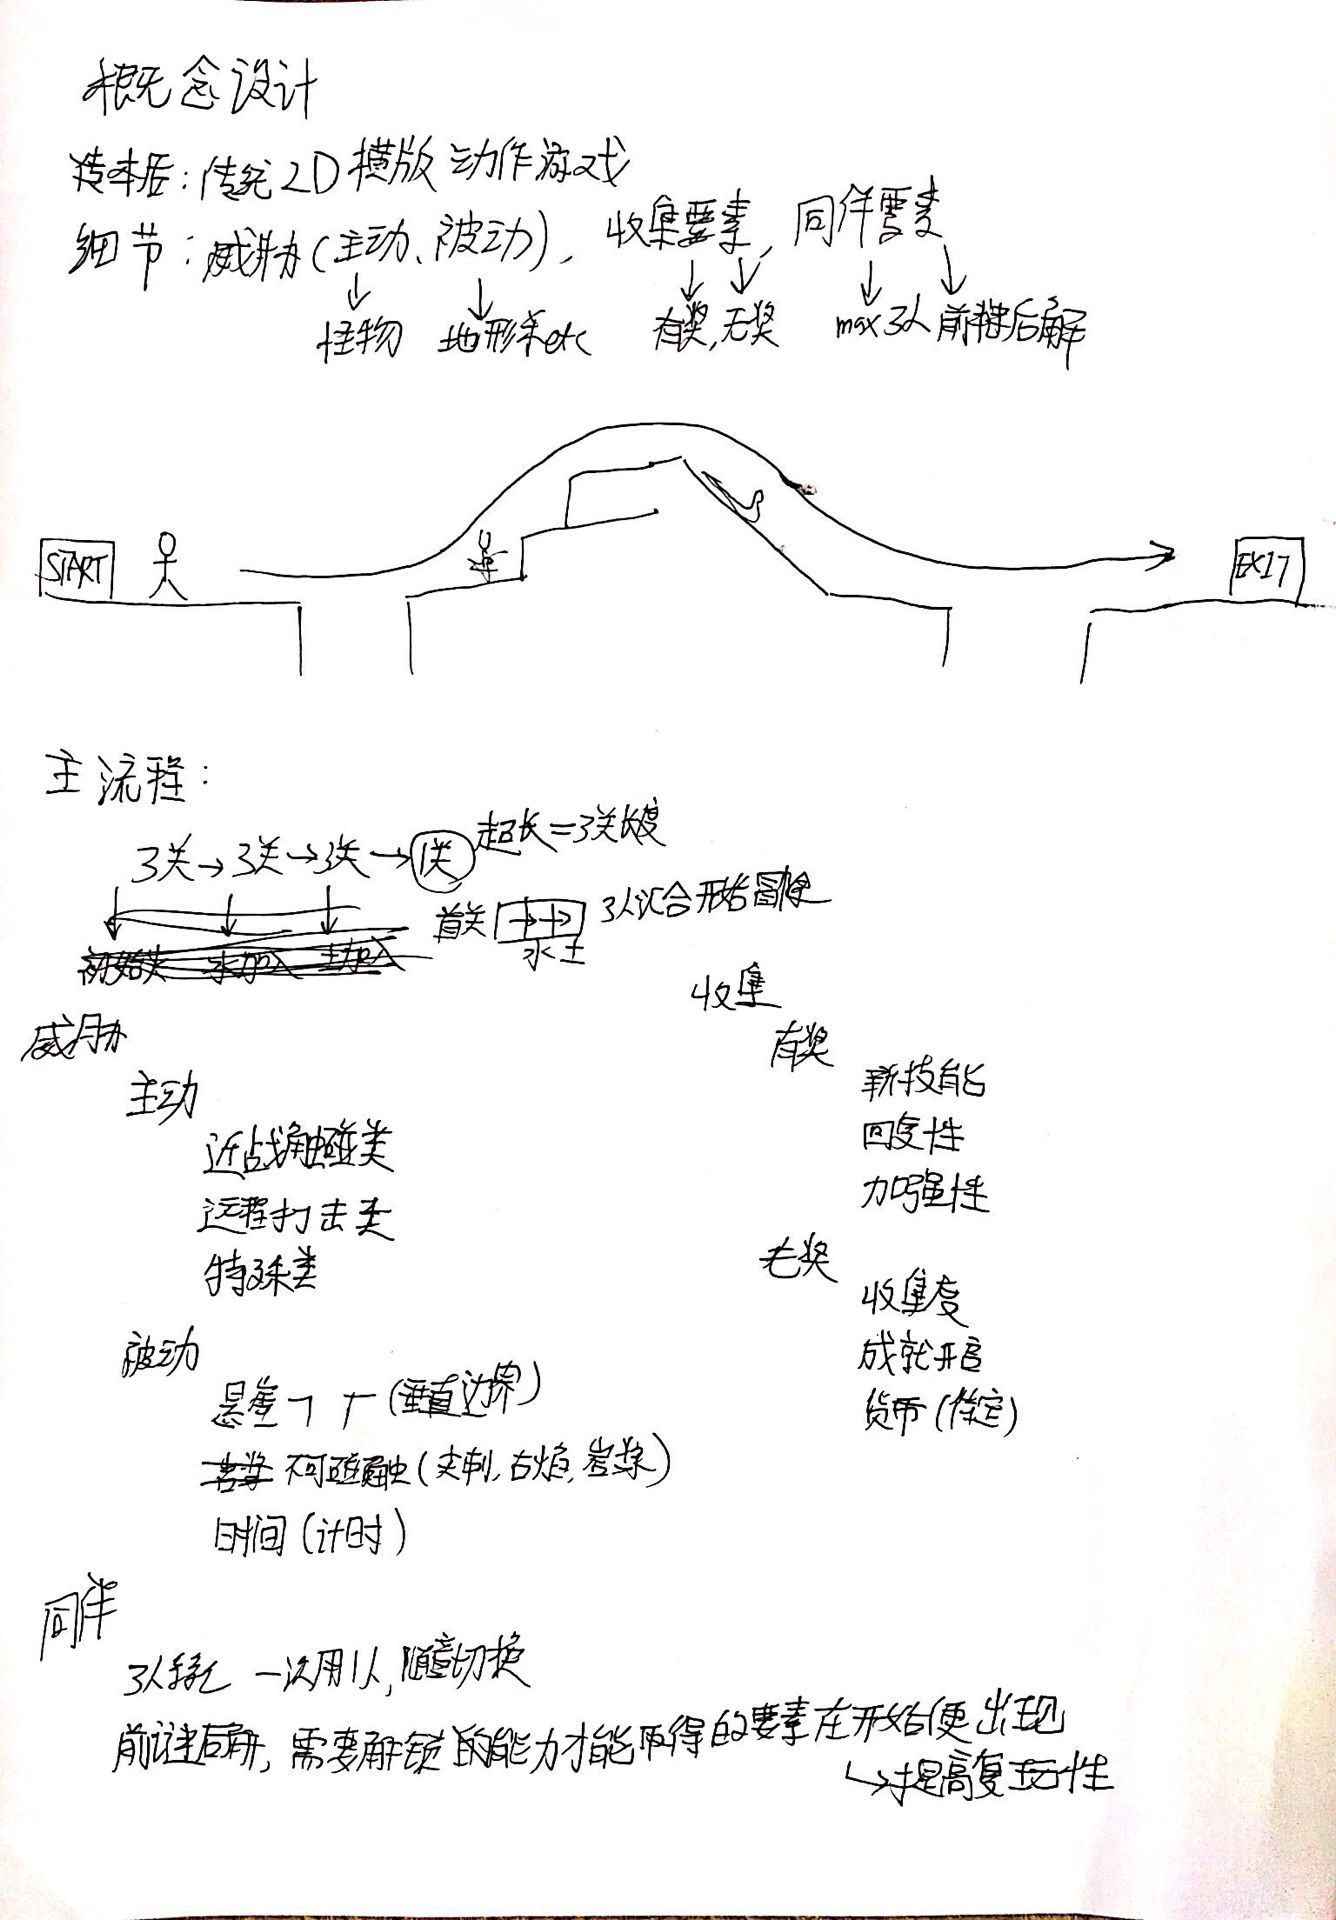 概念设计
基本层：传统2D横版动作游戏
细节：威胁(主动、被动)，收集要素，同伴要素
怪物 地形杀etc 有奖，无奖 max3人 前谜后解
START
EXIT
主流程：
3关→3关→3关→1关 超长=3关长度
初始火 水加入 土加入
首关 3人汇合开始冒险
水 土
威胁
主动
近战触碰类
远程打击类
特殊类
被动
悬崖 (垂直边界)
岩浆 不可碰触(尖刺，石焰，岩浆)
时间(计时)
收集
有奖
新技能
回复性
加强性
无奖
收集度
成就开启
货币(待定)
同伴
3人 一次用1人，随意切换
前谜后解，需要解锁的能力才能取得的要素在开始便出现
↳提高复玩性